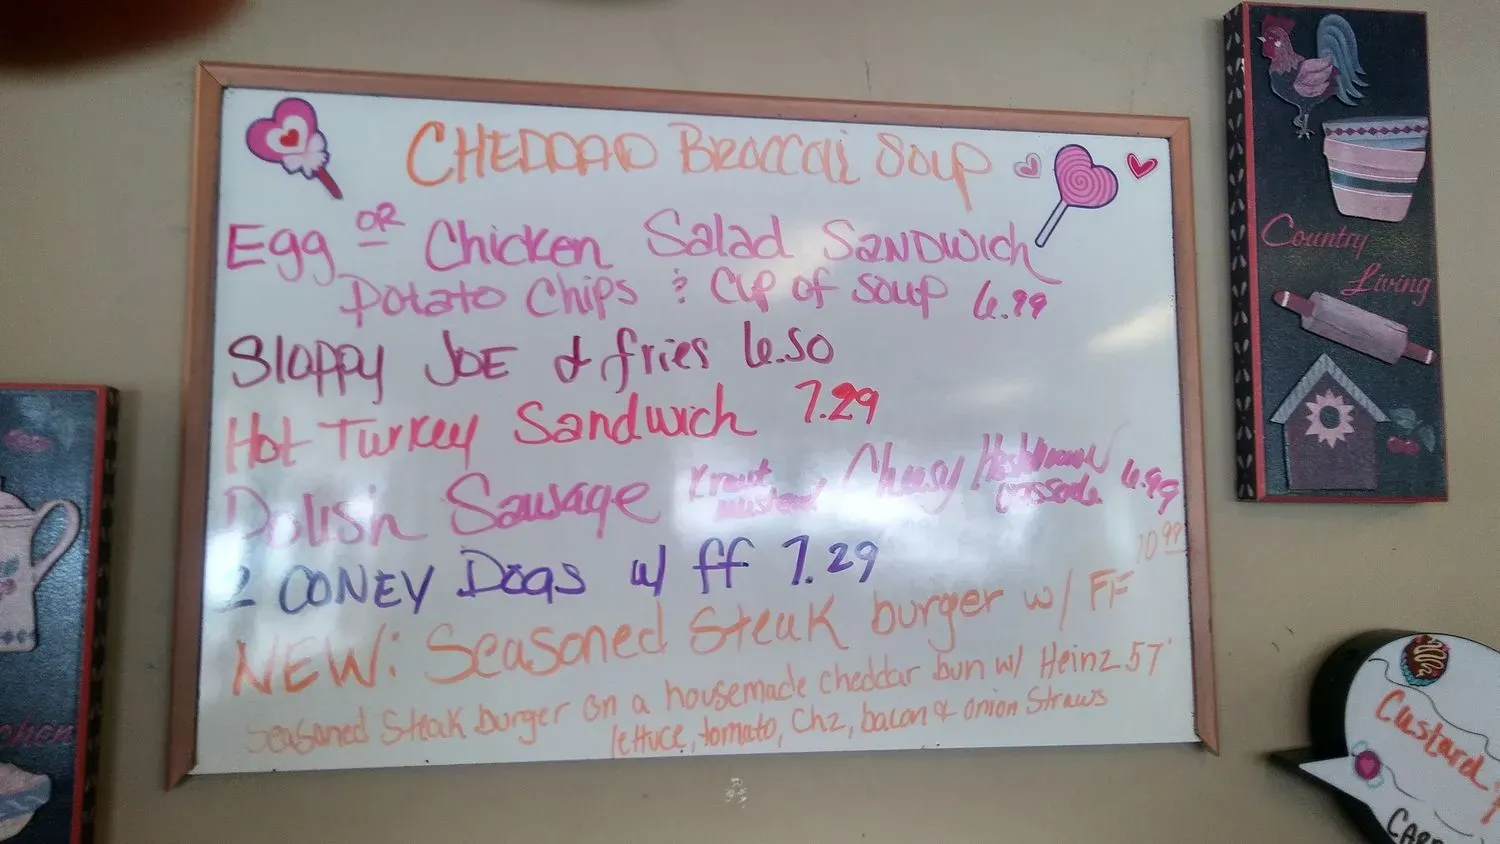 CHEDDAR BROCCOLI SOUP
Egg OR Chicken Salad SANDWICH
Potato Chips & Cup of Soup 6.99
Sloppy JOE & fries 6.50
Hot Turkey Sandwich 7.29
Polish Sausage Kraut mustard Cheesy Hashbrown casserole 6.99
2 CONEY DOGS w/ ff 7.29
10.99
NEW: Seasoned Steak burger w/ FF
Seasoned Steak burger on a housemade cheddar bun w/ Heinz 57
lettuce, tomato, Chz, bacon & onion Straws
Country
Living
Custard